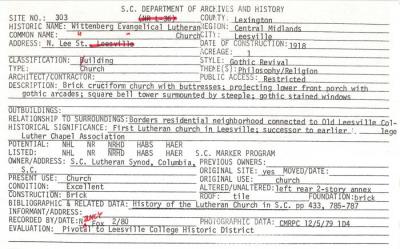 S.C. DEPARTMENT OF ARCHIVES AND HISTORY
SITE NO.: 303 (NR L-36) COUNTY: Lexington
HISTORIC NAME: Wittenberg Evangelical Lutheran REGION: Central Midlands
COMMON NAME: " " Church CITY: Leesville
ADDRESS: N. Lee St. Leesville DATE OF CONSTRUCTION: 1918
ACREAGE: 1
CLASSIFICATION: Building STYLE: Gothic Revival
TYPE: Church THEME(S): Philosophy/Religion
ARCHITECT/CONTRACTOR: PUBLIC ACCESS: Restricted
DESCRIPTION: Brick cruciform church with buttresses; projecting lower front porch with
gothic arcades; square bell tower surmounted by steeple; gothic stained windows
OUTBUILDINGS:
RELATIONSHIP TO SURROUNDINGS: Borders residential neighborhood connected to Old Leesville Col-
HISTORICAL SIGNIFICANCE: First Lutheran church in Leesville; successor to earlier lege
Luther Chapel Association
POTENTIAL: NHL NR NRHD HABS HAER
LISTED: NHL NR NRHD HABS HAER S.C. MARKER PROGRAM
OWNER/ADDRESS: S.C. Lutheran Synod, Columbia, PREVIOUS OWNERS:
S.C. ORIGINAL SITE: yes MOVED/DATE:
PRESENT USE: Church ORIGINAL USE: church
CONDITION: Excellent ALTERED/UNALTERED: left rear 2-story annex
CONSTRUCTION: Brick ROOF: tile FOUNDATION: brick
BIBLIOGRAPHIC & RELATED DATA: History of the Lutheran Church in S.C. pp 433, 785-787
INFORMANT/ADDRESS:
RECORDED BY/DATE: Nancy Fox 2/80 PHOTOGRAPHIC DATA: CMRPC 12/5/79 1D4
EVALUATION: Pivotal to Leesville College Historic District